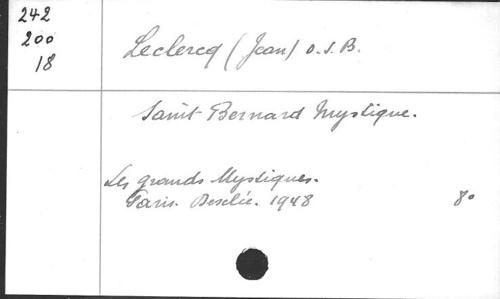 242
200
18
Leclercq (Jean) O.S.B.
Saint Bernard Mystique.
Les grands Mystiques.
Paris. Desclée. 1948 8°